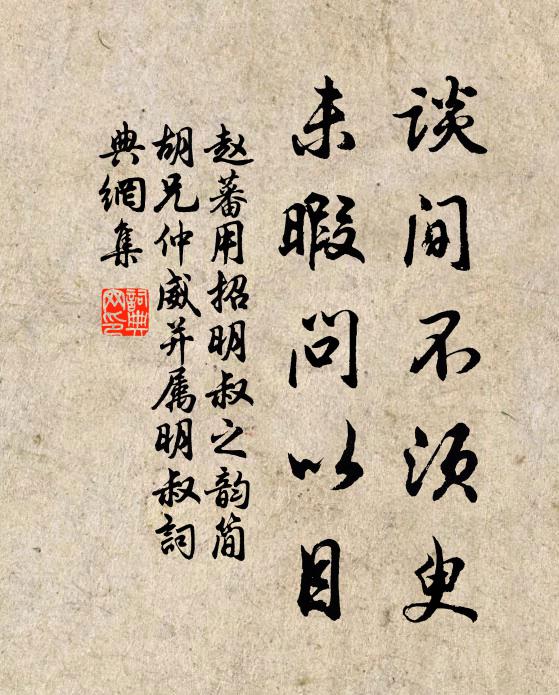 谈间不须臾
未暇问以目
赵蕃用招明叔之韵简
胡兄仲威并属明叔詞
典網集
詞典網印